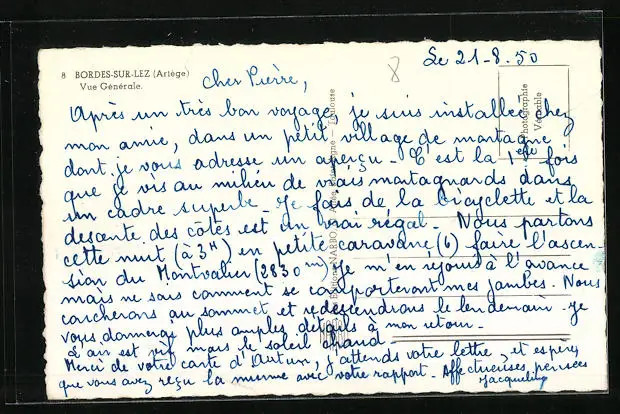 8 BORDES-SUR-LEZ (Ariège)
Vue Générale.
8
Le 21-8.50
Photographie
Véritable
Cher Pierre,
Après un très bon voyage, je suis installée chez
mon amie, dans un petit village de montagne
dont je vous adresse un aperçu - C'est la 1ère fois
que je vis au milieu de vrais montagnards dans
un cadre superbe - Je fais de la bicyclette et la
descente des côtes est un vrai régal - Nous partons
cette nuit (à 3H) en petite caravane (6) faire l'ascen-
sion du Montvalier (2830 m) Je m'en réjouis à l'avance
mais ne sais comment se comporteront mes jambes. Nous
coucherons au sommet et redescendrons le lendemain - Je
vous donnerai plus amples détails à mon retour -
L'air est vif mais le soleil chaud
Merci de votre carte d'Autun, j'attends votre lettre, et espère
que vous avez reçu la mienne avec votre rapport - Affectueuses pensées
Jacqueline
NARBO
Toulouse